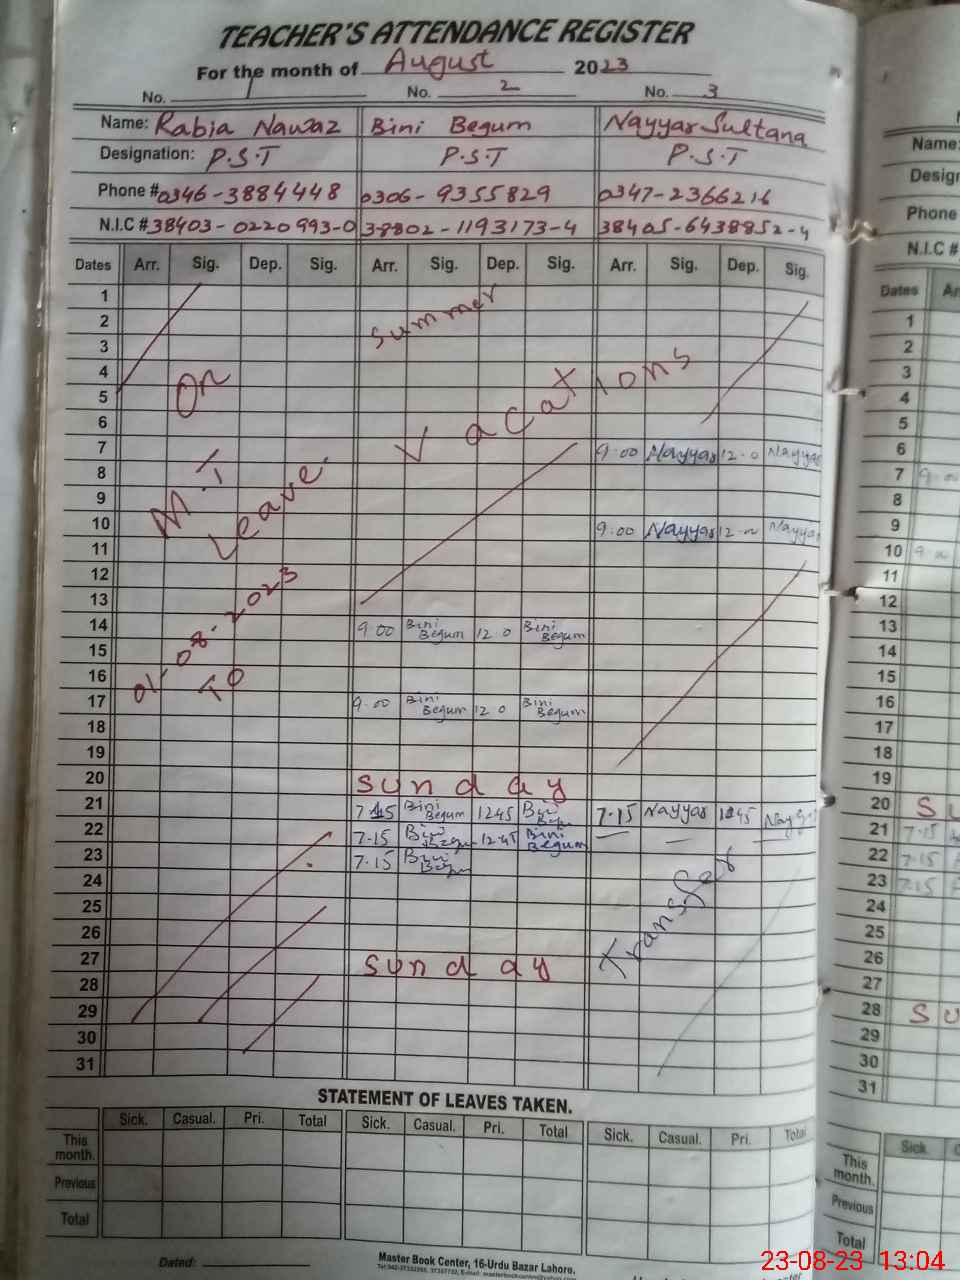 TEACHER'S ATTENDANCE REGISTER
For the month of August 2023
No. 1 No. 2 No. 3
Name: Rabia Nawaz Bini Begum Nayyar Sultana
Designation: P.S.T P.S.T P.S.T
Phone # 0346-3884448 0306-9355829 0347-2366216
N.I.C # 38403-0220993-0 38802-1193173-4 38405-6438852-4
Dates Arr. Sig. Dep. Sig. Arr. Sig. Dep. Sig. Arr. Sig. Dep. Sig.
1
2 Summer
3
4 Vacations
5 On
6
7 9:00 Nayyar 12-0 Nayyar
8 M.T
9 Leave.
10 9:00 Nayyar 12- Nayyar
11
12
13 01-08-2023
14 9:00 Bini Begum 12 0 Bini Begum
15
16 TO
17 9:00 Bini Begum 12 0 Bini Begum
18
19
20 Sunday
21 7 45 Bini Begum 1245 Bini 7-15 Nayyar 1245 Nayyar
22 7-15 Bini Begum 12-45 Bini Begum
23 7-15 Bini Begum
24 Transfer
25
26
27 Sunday
28
29
30
31
STATEMENT OF LEAVES TAKEN.
Sick. Casual. Pri. Total Sick. Casual. Pri. Total Sick. Casual. Pri. Total
This month.
Previous
Total
Dated:
Master Book Center, 16-Urdu Bazar Lahore.
Name:
Desig
Phone
N.I.C #
Dates
1
2
3
4
5
6
7 9-00
8
9
10 9
11
12
13
14
15
16
17
18
19
20 Su
21 7-15
22 7-15
23 7-15
24
25
26
27
28 Su
29
30
31
Sick.
This month.
Previous
Total
23-08-23 13:04